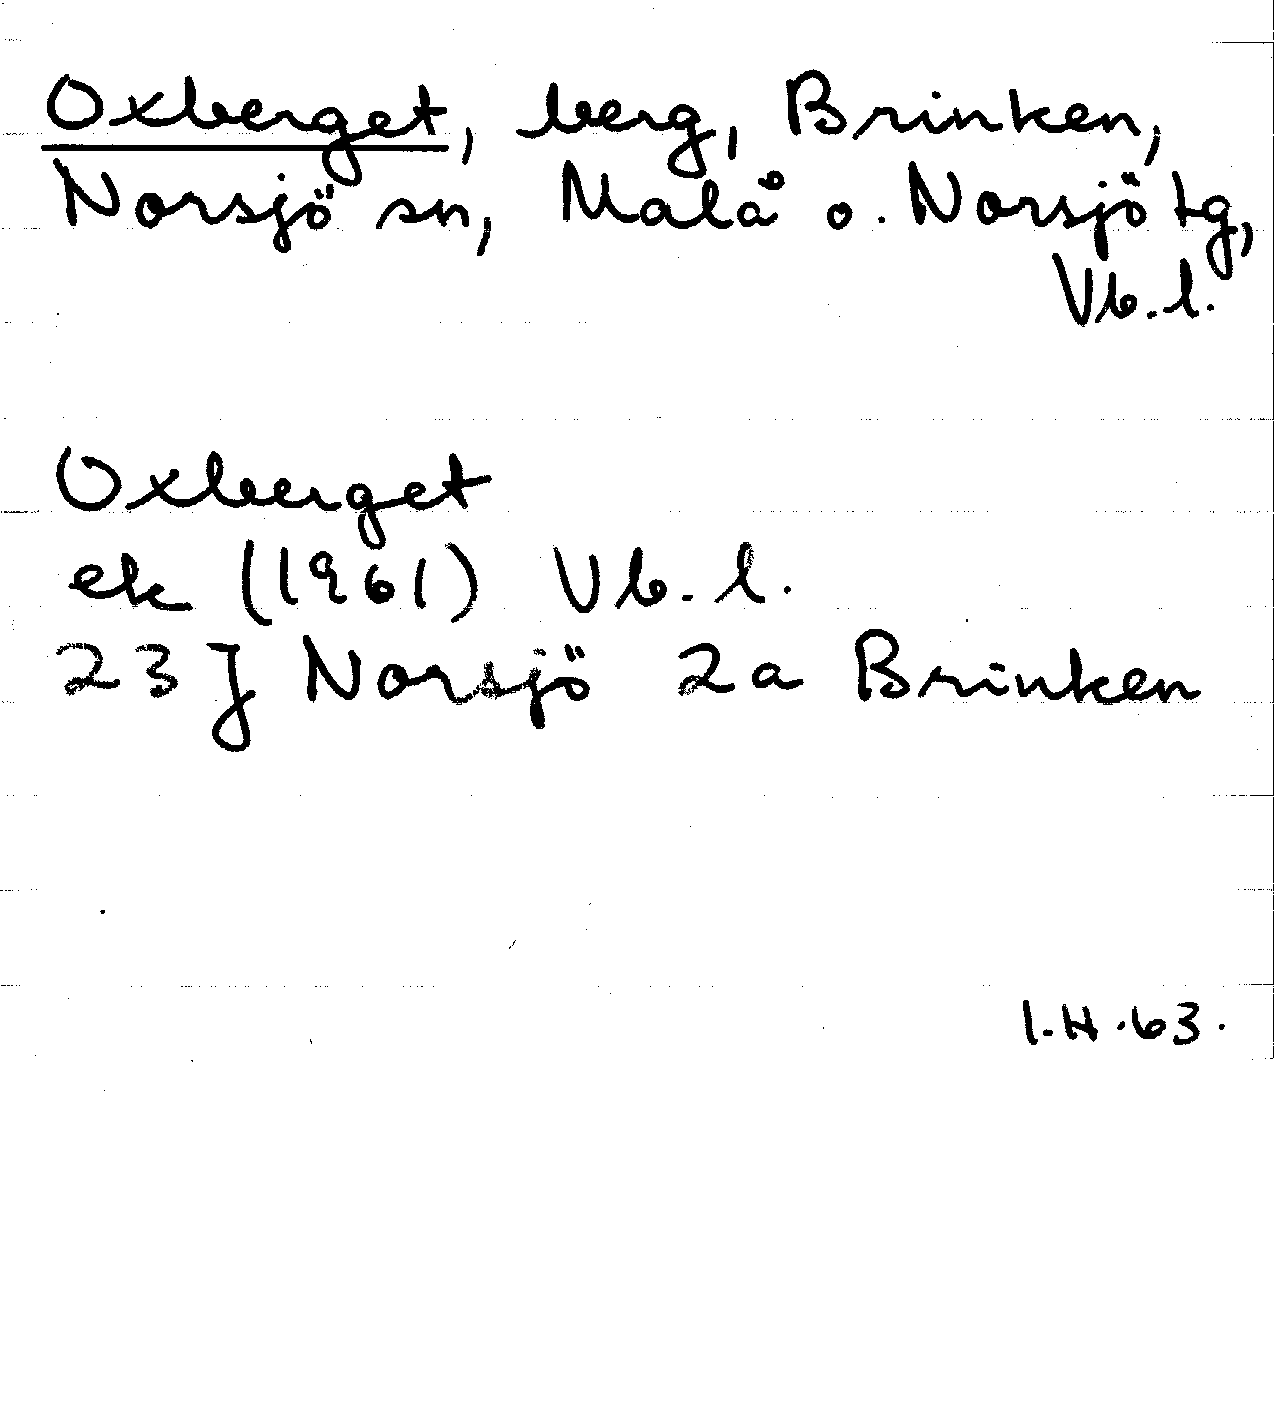 Oxberget, berg, Brinken,
Norsjö sn, Malå o. Norsjö tg,
Vb. l.
Oxberget
ek (1961) Vb. l.
23 J Norsjö 2a Brinken
I.H. 63.